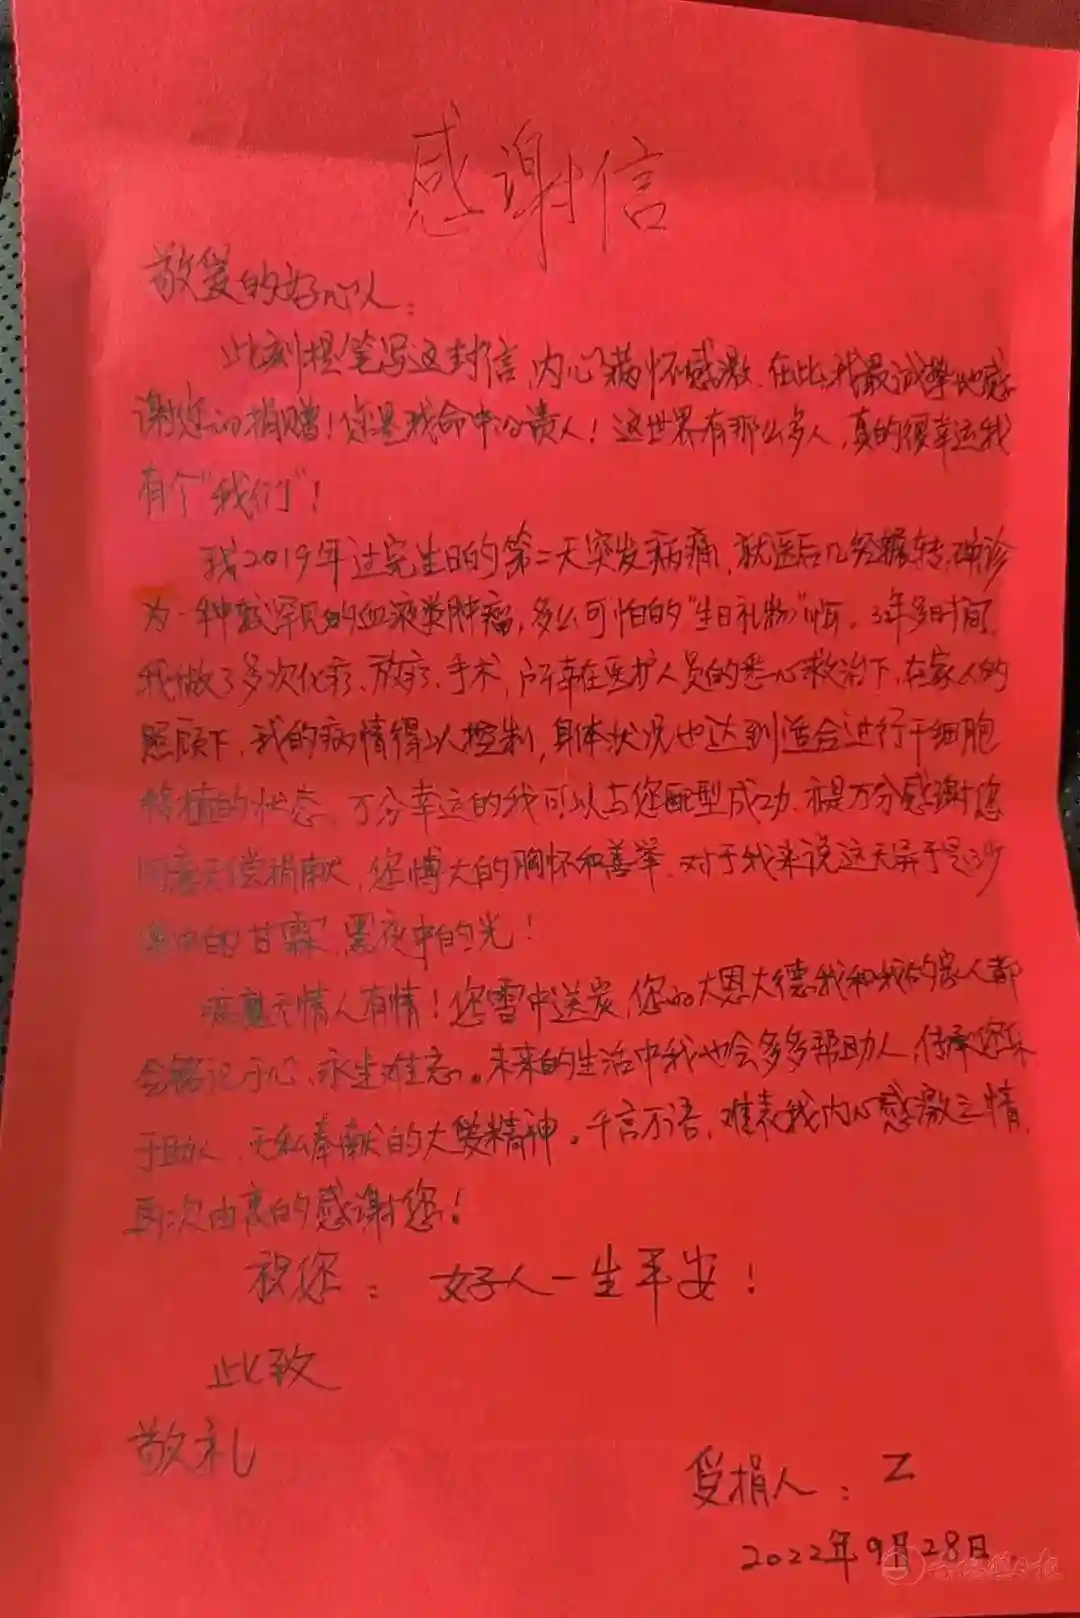 感谢信
敬爱的好心人：
此刻提笔写这封信，内心满怀感激，在此我最诚挚地感
谢您的捐赠！您是我命中的贵人！这世界有那么多人，真的很幸运我
有个“我们”！
我2019年过完生日的第二天突发病痛，就医后几经辗转，确诊
为一种较罕见的血液类肿瘤，多么可怕的“生日礼物”。3年多时间，
我做了多次化疗、放疗、手术，所幸在医护人员的悉心救治下，在家人的
照顾下，我的病情得以控制，身体状况也达到适合进行干细胞
移植的状态。万分幸运的我可以与您配型成功，亦是万分感谢您
愿意无偿捐献，您博大的胸怀和善举，对于我来说这无异于是沙
漠中的甘霖，黑夜中的光！
病魔无情人有情！您雪中送炭，您的大恩大德我和我的家人都
会铭记于心，永生难忘。未来的生活中我也会多多帮助人，传承您乐
于助人，无私奉献的大爱精神。千言万语，难表我内心感激之情，
再次由衷的感谢您！
祝您：好人一生平安！
此致
敬礼
受捐人：Z
2022年9月28日